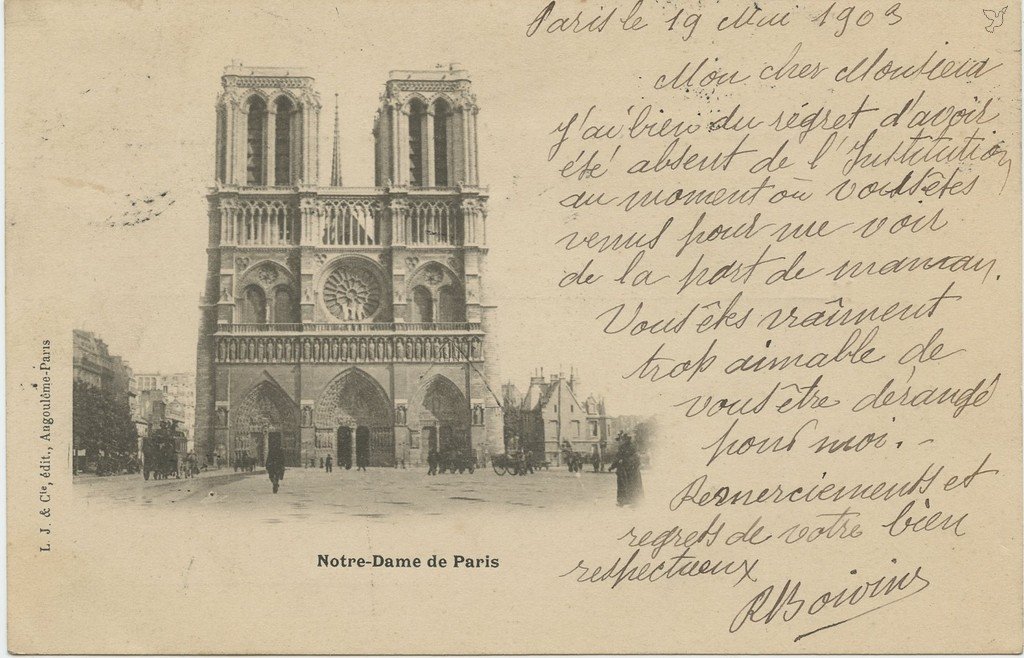 Paris le 19 Mai 1903
Mon cher Monsieur
J'ai bien du régret d'avoir
été absent de l'Institution
au moment où vous êtes
venus pour me voir
de la part de maman.
Vous êtes vraîment
trop aimable de
vous être dérangé
pour moi.
Remerciements et
regrets de votre bien
respectueux
R Boivins
L. J. & Cie, édit., Angoulême-Paris
Notre-Dame de Paris